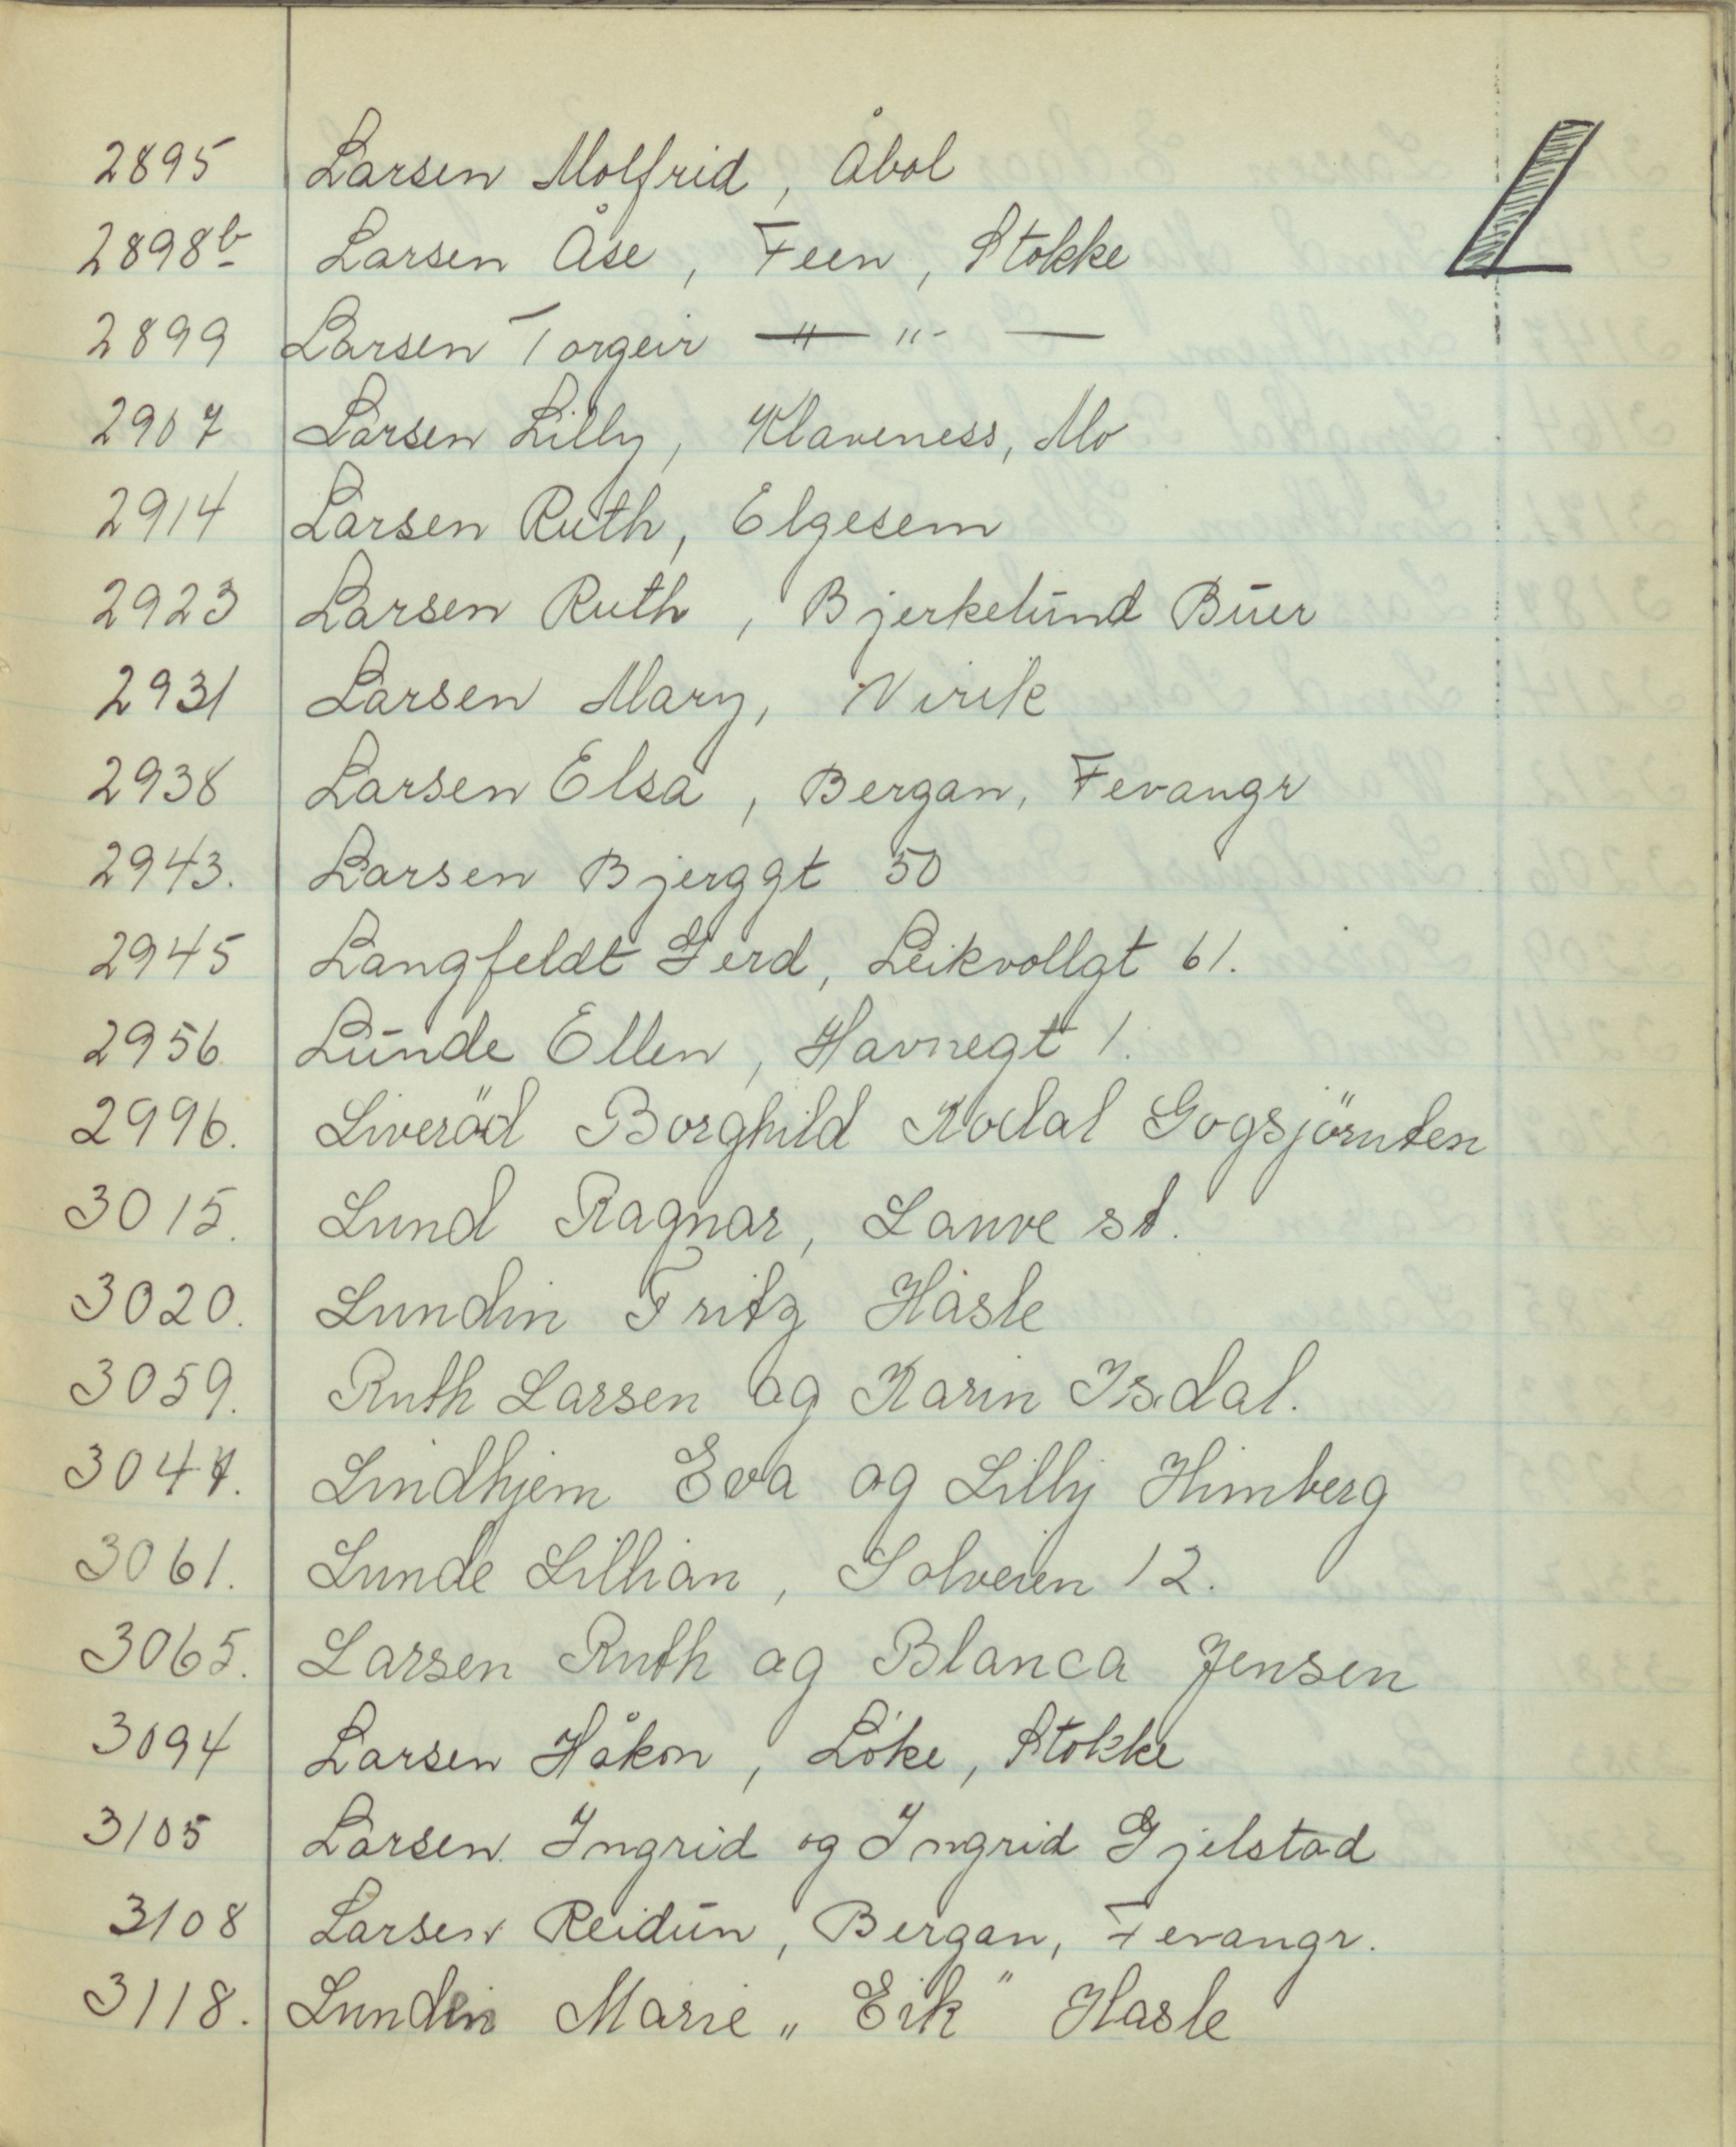 L
2895 Larsen Molfrid, Åbol
2898b Larsen Åse, Feen, Stokke
2899 Larsen Torgeir —"— "- —
2907 Larsen Lilly, Klaveness, Mo
2914 Larsen Ruth, Elgesem
2923 Larsen Ruth, Bjerkelund Buer
2931 Larsen Mary, Virik
2938 Larsen Elsa, Bergan, Fevangr
2943. Larsen Bjerggt 50
2945 Langfeldt Gerd, Leikvollgt 61.
2956 Lunde Ellen, Havnegt 1.
2996. Liveröd Borghild Kodal Gogsjörnten
3015. Lund Ragnar, Lauve st.
3020. Lundin Fritz Hasle
3059. Ruth Larsen og Karin Isdal.
3047. Lindhjem Eva og Lilly Himberg
3061. Lunde Lillian, Solveien 12.
3065. Larsen Ruth og Blanca Jensen
3094 Larsen Håkon, Löke, Stokke
3105 Larsen Ingrid og Ingrid Gjelstad
3108 Larsen Reidun, Bergan, Fevangr.
3118. Lundin Marie „Eik" Hasle